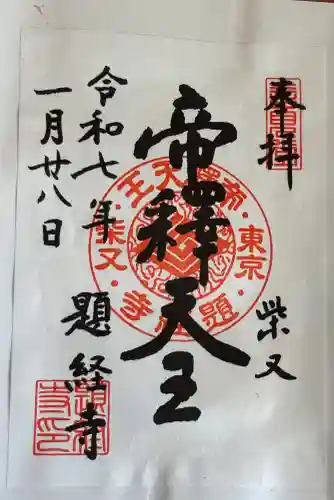 奉拝
柴又
帝釋天王
題経寺
令和七年
一月廿八日
帝釋天王
東京
柴又
題経寺